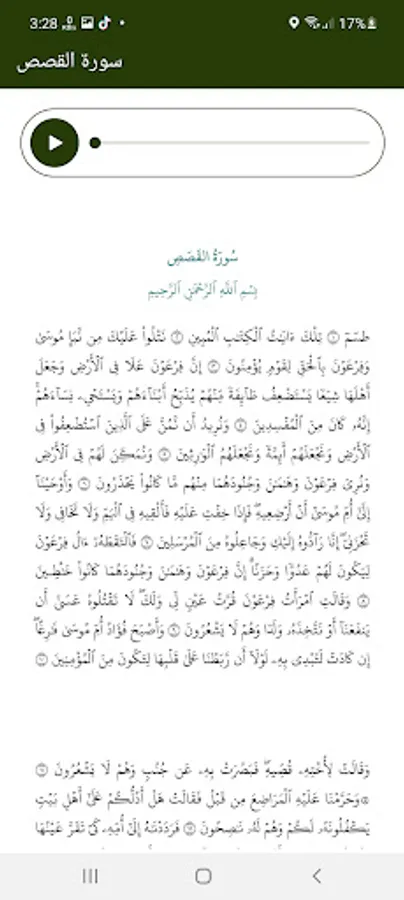 3:28
17%
سورة القصص
سُورَةُ القَصَصِ
بِسْمِ ٱللَّهِ ٱلرَّحْمَٰنِ ٱلرَّحِيمِ
طسٓمٓ ۝١ تِلْكَ ءَايَٰتُ ٱلْكِتَٰبِ ٱلْمُبِينِ ۝٢ نَتْلُوا۟ عَلَيْكَ مِن نَّبَإِ مُوسَىٰ
وَفِرْعَوْنَ بِٱلْحَقِّ لِقَوْمٍ يُؤْمِنُونَ ۝٣ إِنَّ فِرْعَوْنَ عَلَا فِى ٱلْأَرْضِ وَجَعَلَ
أَهْلَهَا شِيَعًا يَسْتَضْعِفُ طَآئِفَةً مِّنْهُمْ يُذَبِّحُ أَبْنَآءَهُمْ وَيَسْتَحْىِۦ نِسَآءَهُمْ ۚ
إِنَّهُۥ كَانَ مِنَ ٱلْمُفْسِدِينَ ۝٤ وَنُرِيدُ أَن نَّمُنَّ عَلَى ٱلَّذِينَ ٱسْتُضْعِفُوا۟ فِى
ٱلْأَرْضِ وَنَجْعَلَهُمْ أَئِمَّةً وَنَجْعَلَهُمُ ٱلْوَٰرِثِينَ ۝٥ وَنُمَكِّنَ لَهُمْ فِى ٱلْأَرْضِ
وَنُرِىَ فِرْعَوْنَ وَهَٰمَٰنَ وَجُنُودَهُمَا مِنْهُم مَّا كَانُوا۟ يَحْذَرُونَ ۝٦ وَأَوْحَيْنَآ
إِلَىٰٓ أُمِّ مُوسَىٰٓ أَنْ أَرْضِعِيهِ ۖ فَإِذَا خِفْتِ عَلَيْهِ فَأَلْقِيهِ فِى ٱلْيَمِّ وَلَا تَخَافِى وَلَا
تَحْزَنِىٓ ۖ إِنَّا رَآدُّوهُ إِلَيْكِ وَجَاعِلُوهُ مِنَ ٱلْمُرْسَلِينَ ۝٧ فَٱلْتَقَطَهُۥٓ ءَالُ فِرْعَوْنَ
لِيَكُونَ لَهُمْ عَدُوًّا وَحَزَنًا ۗ إِنَّ فِرْعَوْنَ وَهَٰمَٰنَ وَجُنُودَهُمَا كَانُوا۟ خَٰطِـِٔينَ
۝٨ وَقَالَتِ ٱمْرَأَتُ فِرْعَوْنَ قُرَّتُ عَيْنٍ لِّى وَلَكَ ۖ لَا تَقْتُلُوهُ عَسَىٰٓ أَن
يَنفَعَنَآ أَوْ نَتَّخِذَهُۥ وَلَدًا وَهُمْ لَا يَشْعُرُونَ ۝٩ وَأَصْبَحَ فُؤَادُ أُمِّ مُوسَىٰ فَٰرِغًا ۖ
إِن كَادَتْ لَتُبْدِى بِهِۦ لَوْلَآ أَن رَّبَطْنَا عَلَىٰ قَلْبِهَا لِتَكُونَ مِنَ ٱلْمُؤْمِنِينَ ۝١٠
وَقَالَتْ لِأُخْتِهِۦ قُصِّيهِ ۖ فَبَصُرَتْ بِهِۦ عَن جُنُبٍ وَهُمْ لَا يَشْعُرُونَ ۝١١
۞ وَحَرَّمْنَا عَلَيْهِ ٱلْمَرَاضِعَ مِن قَبْلُ فَقَالَتْ هَلْ أَدُلُّكُمْ عَلَىٰٓ أَهْلِ بَيْتٍ
يَكْفُلُونَهُۥ لَكُمْ وَهُمْ لَهُۥ نَٰصِحُونَ ۝١٢ فَرَدَدْنَٰهُ إِلَىٰٓ أُمِّهِۦ كَىْ تَقَرَّ عَيْنُهَا